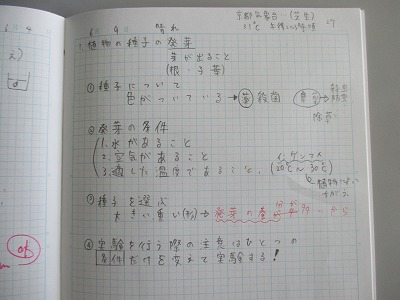 6 4
6 9 晴れ
京都気象台…(芝生)
31℃ 午後
27
植物の種子の発芽
芽が出ること
(根・子葉)
① 種子について
色がついている→薬 殺菌
除草
② 発芽の条件
1. 水があること
2. 空気があること
3. 適した温度であること。
インゲンマメ
(20℃〜30℃)
植物によい
ちがう
③ 種子を選ぶ
大きい重い(物)→発芽の養分が から
④ 実験を行う際の注意はひとつの
条件だけを変えて実験する!